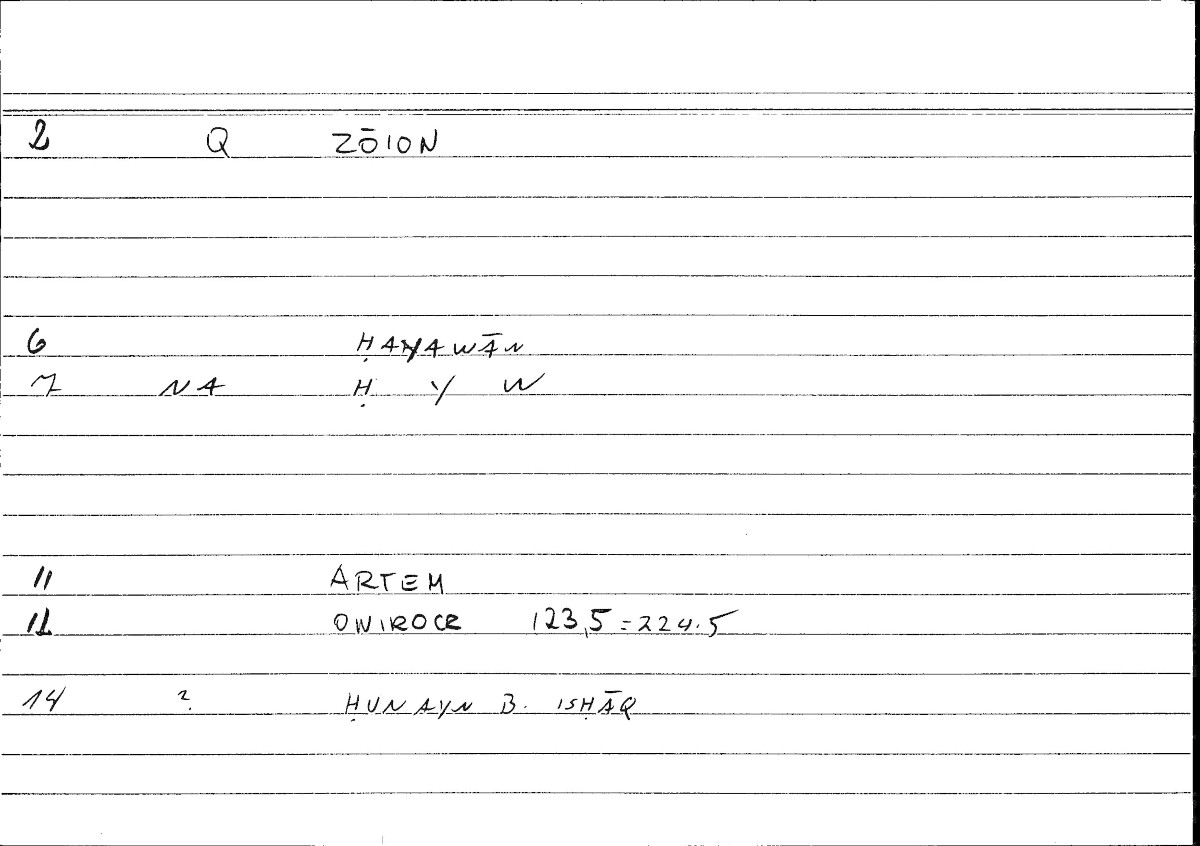 2 Q ZŌION
6 ḤAYAWĀN
7 NA Ḥ Y W
11 ARTEM
12 ONIROCR 123,5 = 224.5
14 ? ḤUNAYN B. ISḤĀQ